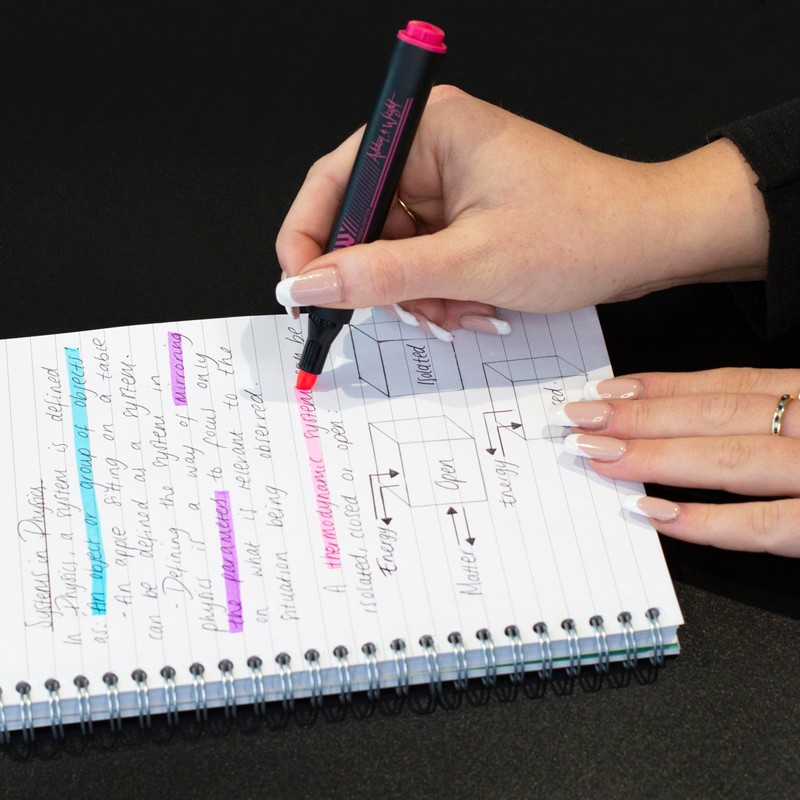 Systems in Physics
In Physics, a system is defined
as: An object or group of objects!
- An apple sitting on a table
can be defined as a system.
- Defining the system in
physics is a way of mirroring
the parameters to focus only
on what is relevant to the
situation being observed.
A thermodynamic system can be
isolated, closed or open:
Isolated
Energy
Open
Matter
Energy
Ashley & Wright